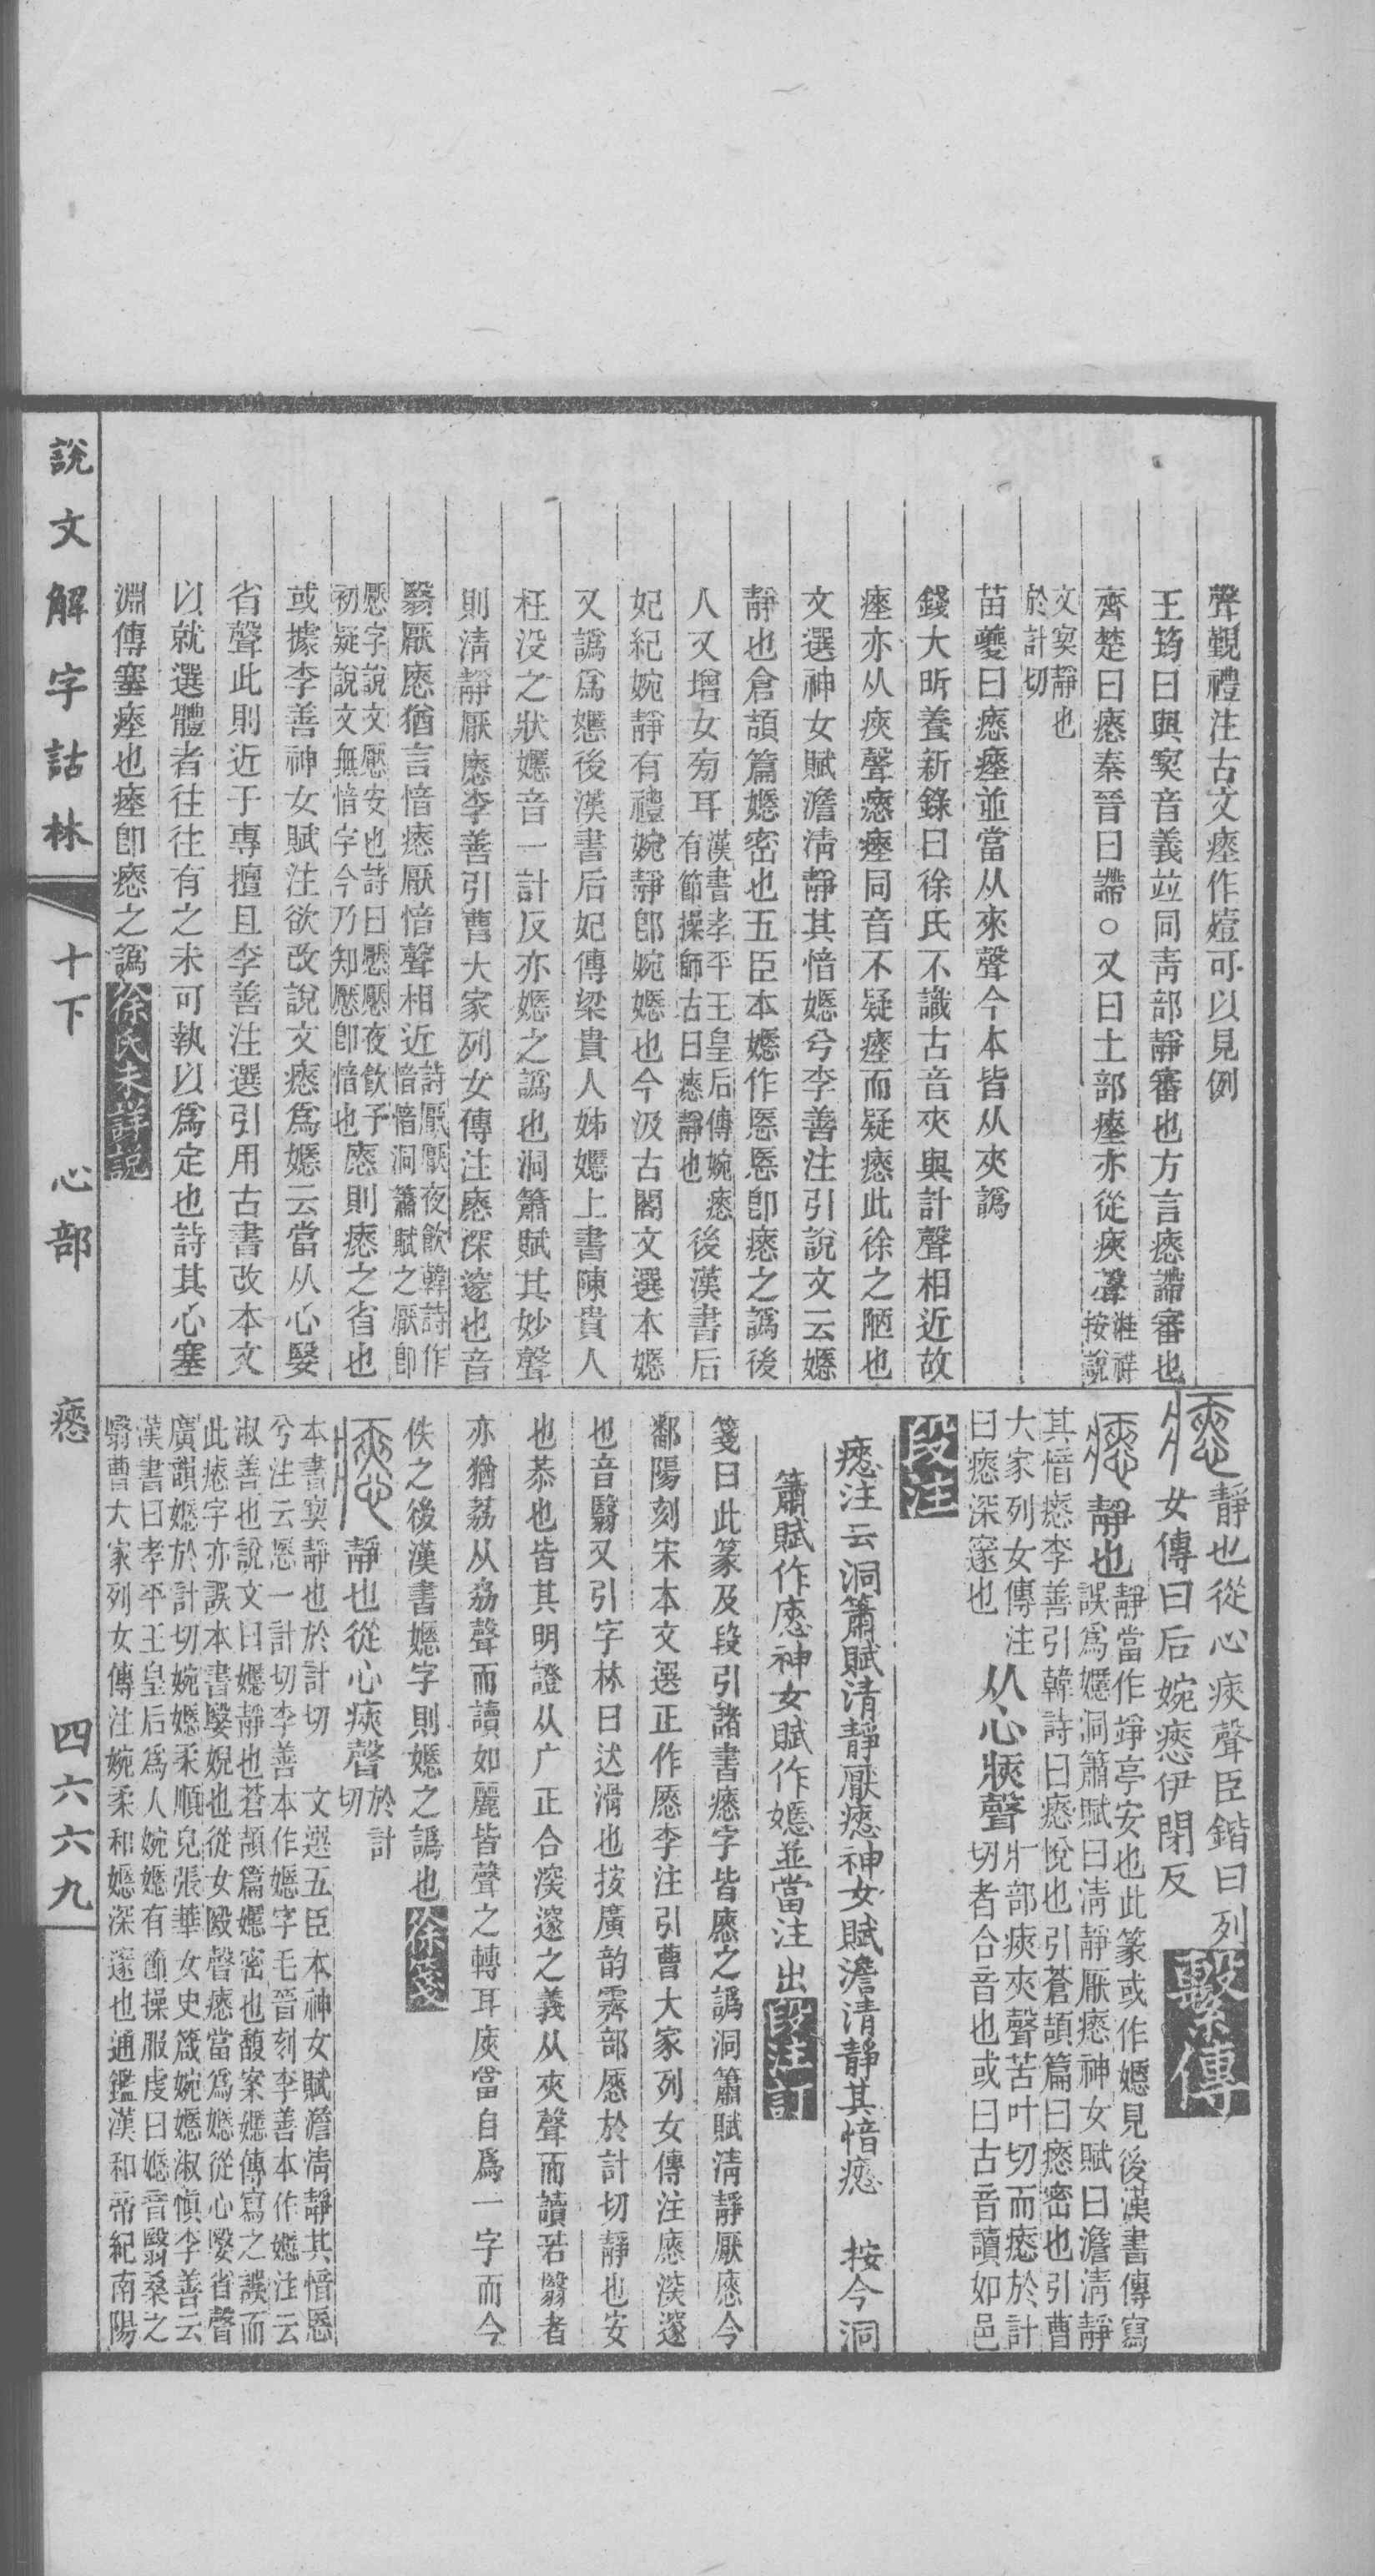 聲覲禮注古文瘞作殪可以見例
王筠曰與窫音義竝同靑部靜審也方言瘱諦審也
齊楚曰瘱秦晉曰諦○又曰土部瘞亦從㾜聲桂祥按說
文窫靜也於計切
苗夔曰瘱瘞並當从來聲今本皆从夾譌
錢大昕養新錄曰徐氏不識古音夾與計聲相近故
瘞亦从㾜聲瘱瘞同音不疑瘞而疑瘱此徐之陋也
文選神女賦澹淸靜其愔嫕兮李善注引說文云嫕
靜也倉頡篇嫕密也五臣本嫕作慝慝卽瘱之譌後
人又增女旁耳漢書孝平王皇后傳婉瘱有節操師古曰瘱靜也後漢書后
妃紀婉靜有禮婉靜卽婉嫕也今汲古閣文選本嫕
又譌爲㜾後漢書后妃傳梁貴人姊嫕上書陳貴人
枉没之狀嫕音一計反亦嫕之譌也洞簫賦其妙聲
則淸靜厭㥷李善引曹大家列女傳注㥷深邃也音
翳厭㥷猶言愔瘱厭愔聲相近詩厭厭夜飮韓詩作愔愔洞簫賦之厭卽
懕字說文懕安也詩曰懕懕夜飮予初疑說文無愔字今乃知懕卽愔也㥷則瘱之省也
或據李善神女賦注欲改說文瘱爲嫕云當从心嫛
省聲此則近于專擅且李善注選引用古書改本文
以就選體者往往有之未可執以爲定也詩其心塞
淵傳塞瘞也瘞卽瘱之譌徐氏未詳說
靜也從心㾜聲臣鍇曰列
女傳曰后婉瘱伊閉反繫傳
靜也靜當作竫亭安也此篆或作嫕見後漢書傳寫
誤爲嫕洞簫賦曰淸靜厭瘱神女賦曰澹淸靜
其愔瘱李善引韓詩曰瘱悅也引蒼頡篇曰瘱密也引曹
大家列女傳注曰瘱深邃也从心㾜聲疒部㾜夾聲苦叶切而瘱於計
切者合音也或曰古音讀如邑
段注
瘱注云洞簫賦清靜厭瘱神女賦澹清靜其愔瘱 按今洞
簫賦作㥷神女賦作嫕並當注出段注訂
箋曰此篆及段引諸書瘱字皆㥷之譌洞簫賦淸靜厭㥷今
鄱陽刻宋本文選正作㥷李注引曹大家列女傳注㥷深邃
也音翳又引字林曰泆滑也按廣韵霽部㥷於計切靜也安
也恭也皆其明證从广正合深邃之義从夾聲而讀若翳者
亦猶荔从劦聲而讀如麗皆聲之轉耳庚當自爲一字而今
佚之後漢書嫕字則嫕之譌也徐箋
靜也從心㾜聲於計切
本書窫靜也於計切 文選五臣本神女賦澹淸靜其愔慝
兮注云慝一計切李善本作嫕字毛晉刻李善本作嫕注云
淑善也說文曰嫕靜也蒼頡篇嫕密也馥案嫕傳寫之誤而
此瘱字亦誤本書嫛婗也從女殹聲瘱當爲嫕從心嫛省聲
廣韻嫕於計切婉嫕柔順皃張華女史箴婉嫕淑愼李善云
漢書曰孝平王皇后爲人婉嫕有節操服虔曰嫕音翳桑之
翳曹大家列女傳注婉柔和嫕深邃也通鑑漢和帝紀南陽
說文解字詁林 十下 心部 瘱 四六六九